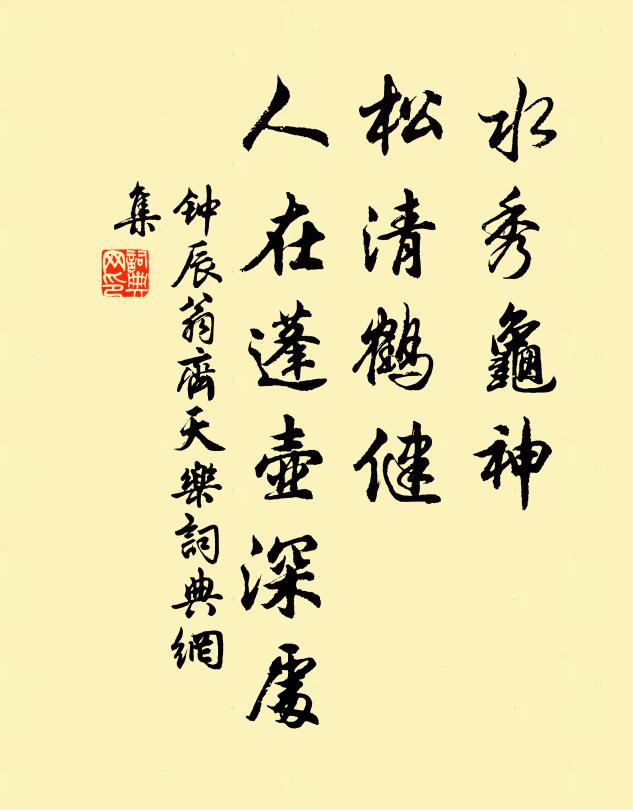 水秀龜神
松清鶴健
人在蓬壺深處
钟辰翁齊天樂詞典網
集
詞典
网印